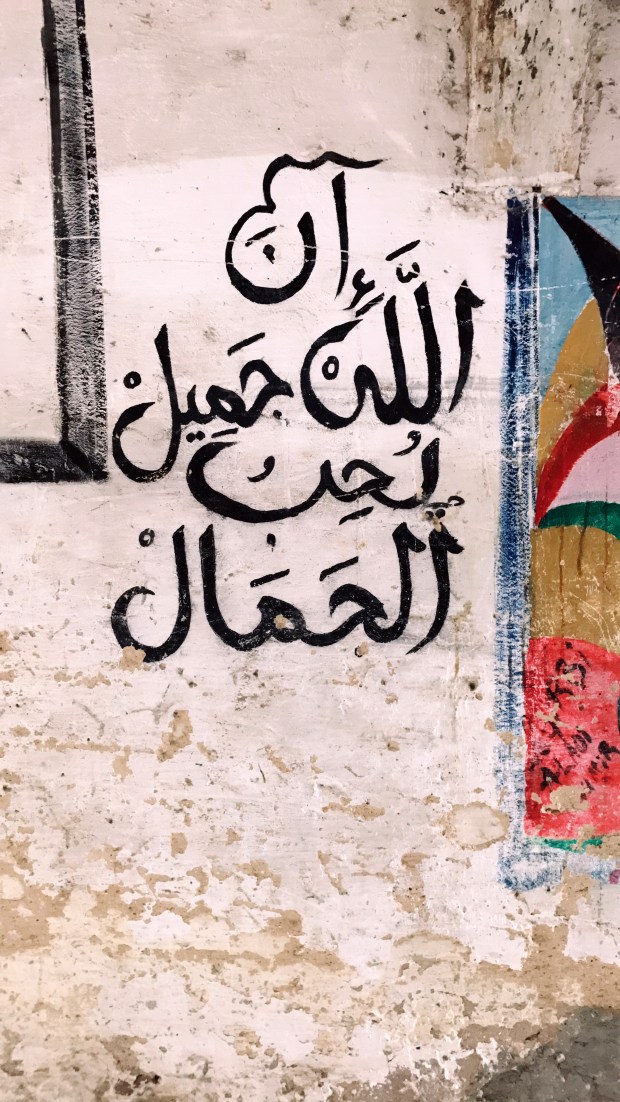 انَ
اللَّه جَمِيلْ
يُحِبُ
الجَمَالْ